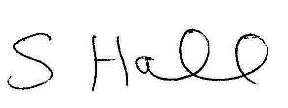 S Hall